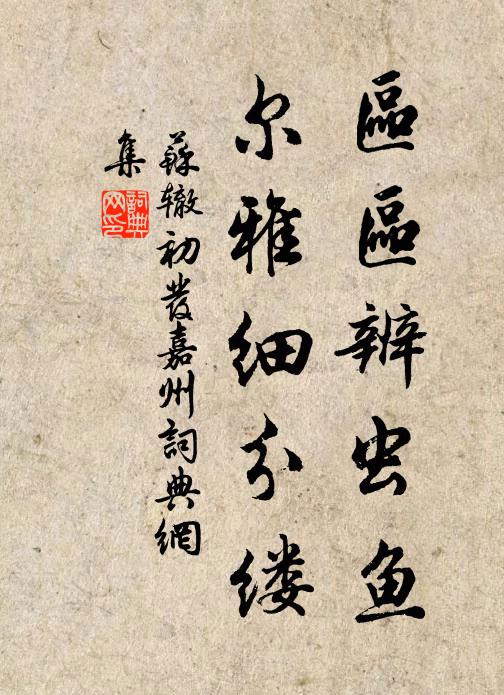 區區辨虫鱼
尔雅细分缕
蘇辙初发嘉州詞典網
集
詞典
网印